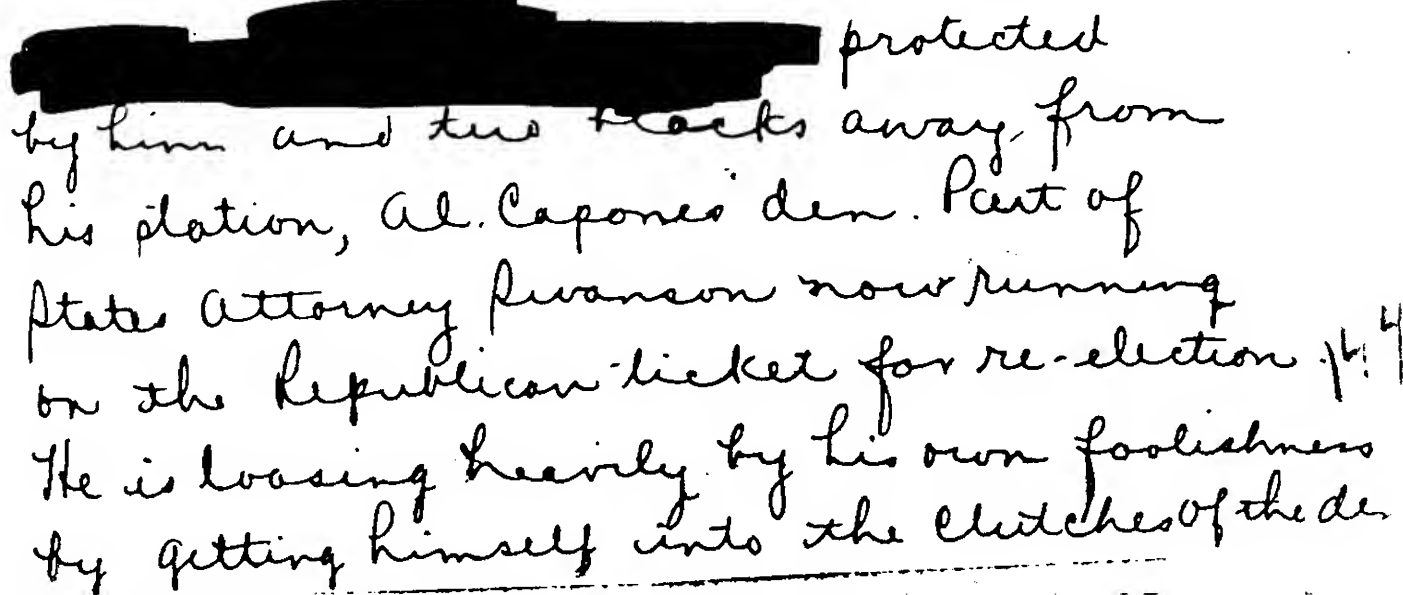 protected
by him and two blocks away from
his station, Al. Capones den. Part of
States Attorney Swanson now running
on the Republican ticket for re-election
He is loosing heavily by his own foolishness
by getting himself into the clutches of the de